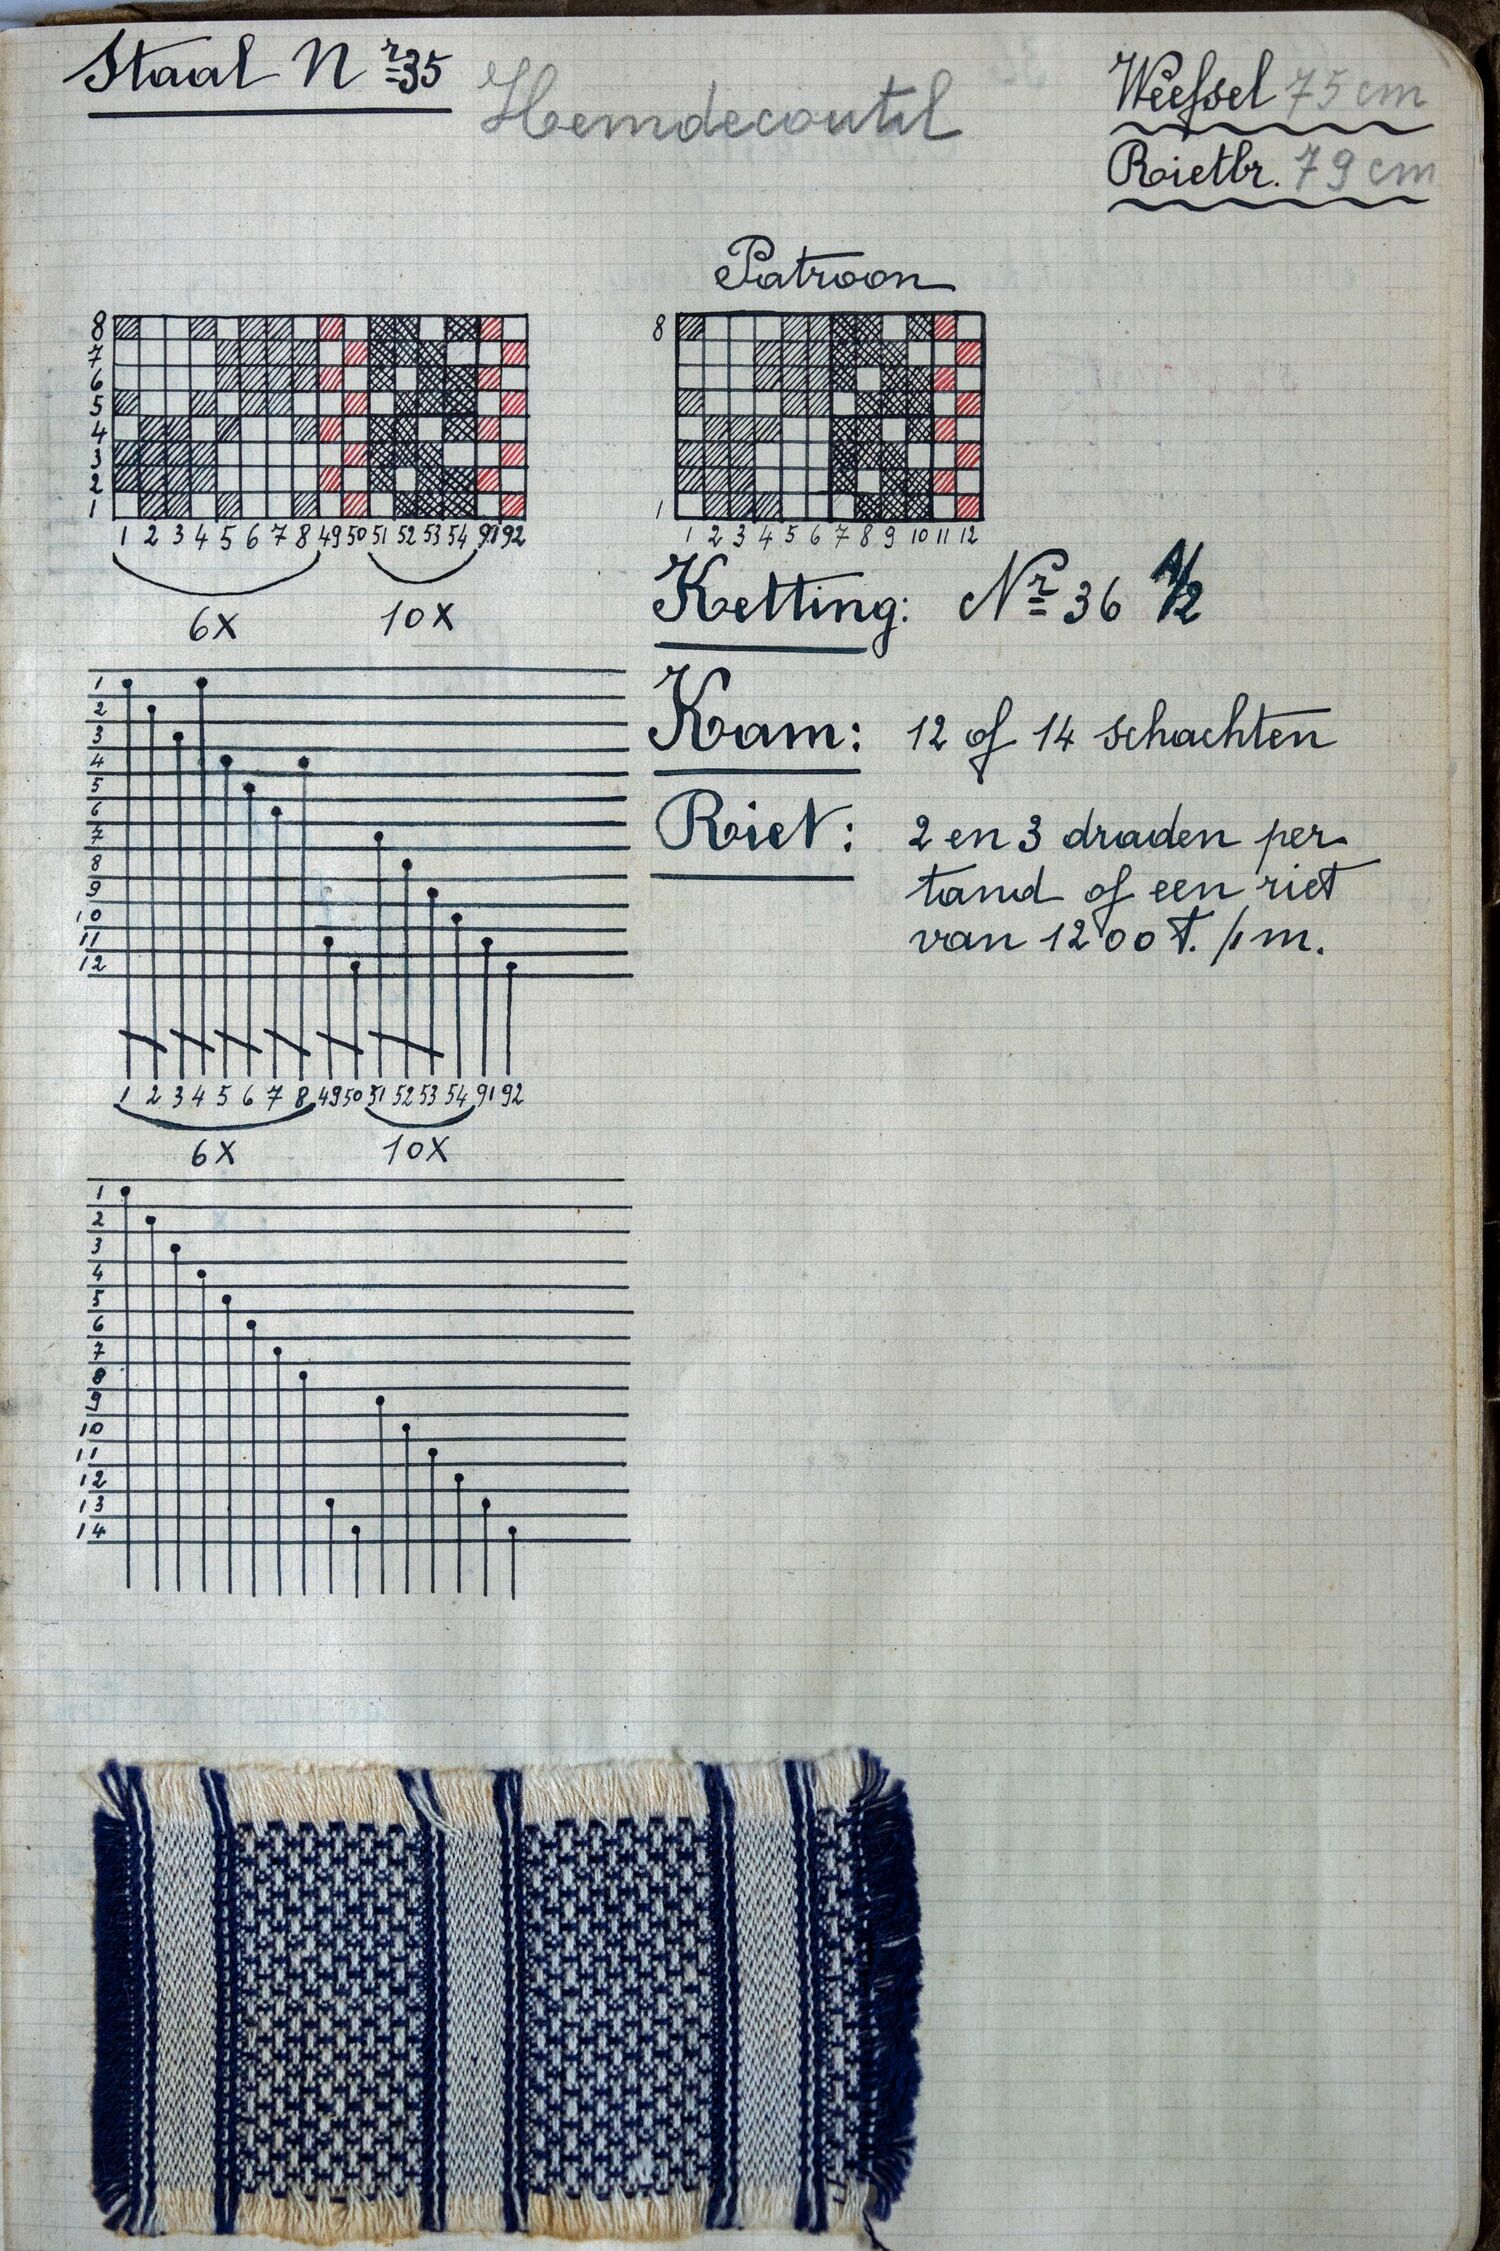 Staal Nr 35
Hemdecoutil
Weefsel 75 cm
Rietbr. 79 cm
8
7
6
5
4
3
2
1
1 2 3 4 5 6 7 8 49 50 51 52 53 54 91 92
6X 10X
Patroon
8
1
1 2 3 4 5 6 7 8 9 10 11 12
Ketting: Nr 36 1/2
Kam: 12 of 14 schachten
Riet: 2 en 3 draden per
tand of een riet
van 1200 T. /1 m.
1
2
3
4
5
6
7
8
9
10
11
12
1 2 3 4 5 6 7 8 49 50 51 52 53 54 91 92
6X 10X
1
2
3
4
5
6
7
8
9
10
11
12
13
14